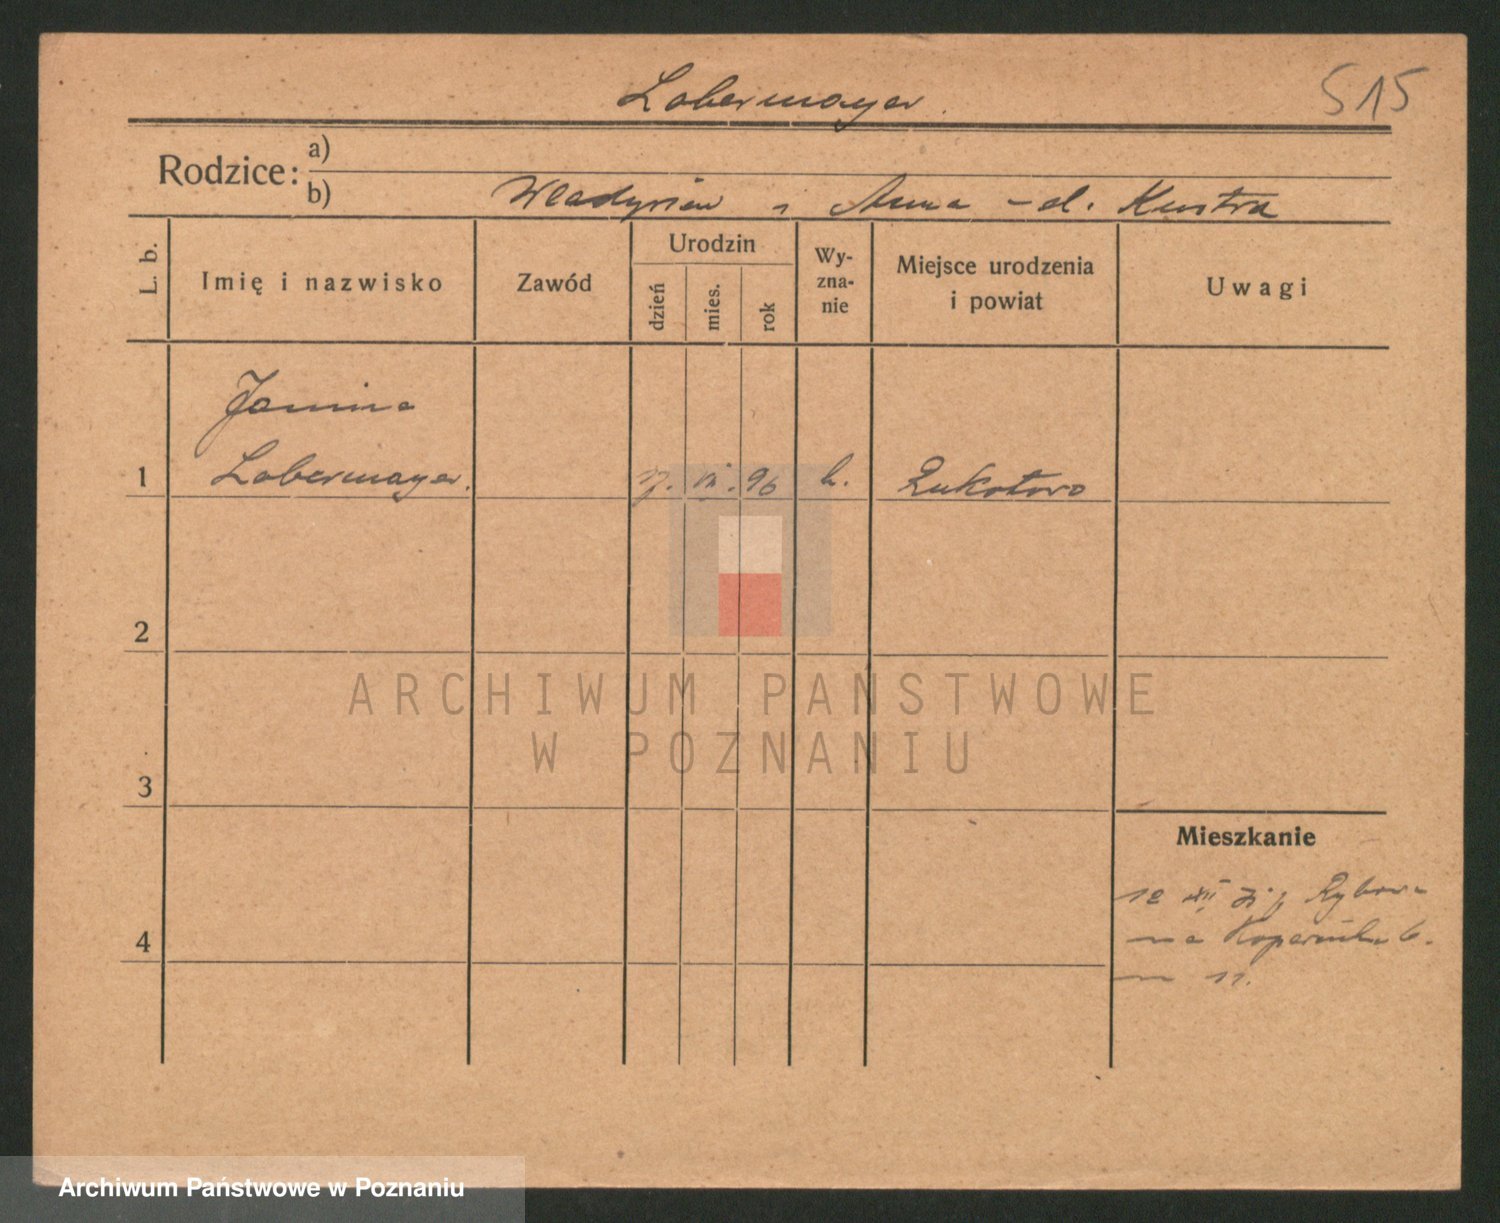 Lobermayer.
515
Rodzice:
a)
b) Władysław i Anna - d. Kustra
L. b.
Imię i nazwisko
Zawód
Urodzin
dzień
mies.
rok
Wy-
zna-
nie
Miejsce urodzenia
i powiat
Uwagi
Janina
1 Lobermayer. 96 k.
2
3
4
Mieszkanie
12 XII
na Kopernika 6.
m 11.
ARCHIWUM PAŃSTWOWE
W POZNANIU
Archiwum Państwowe w Poznaniu